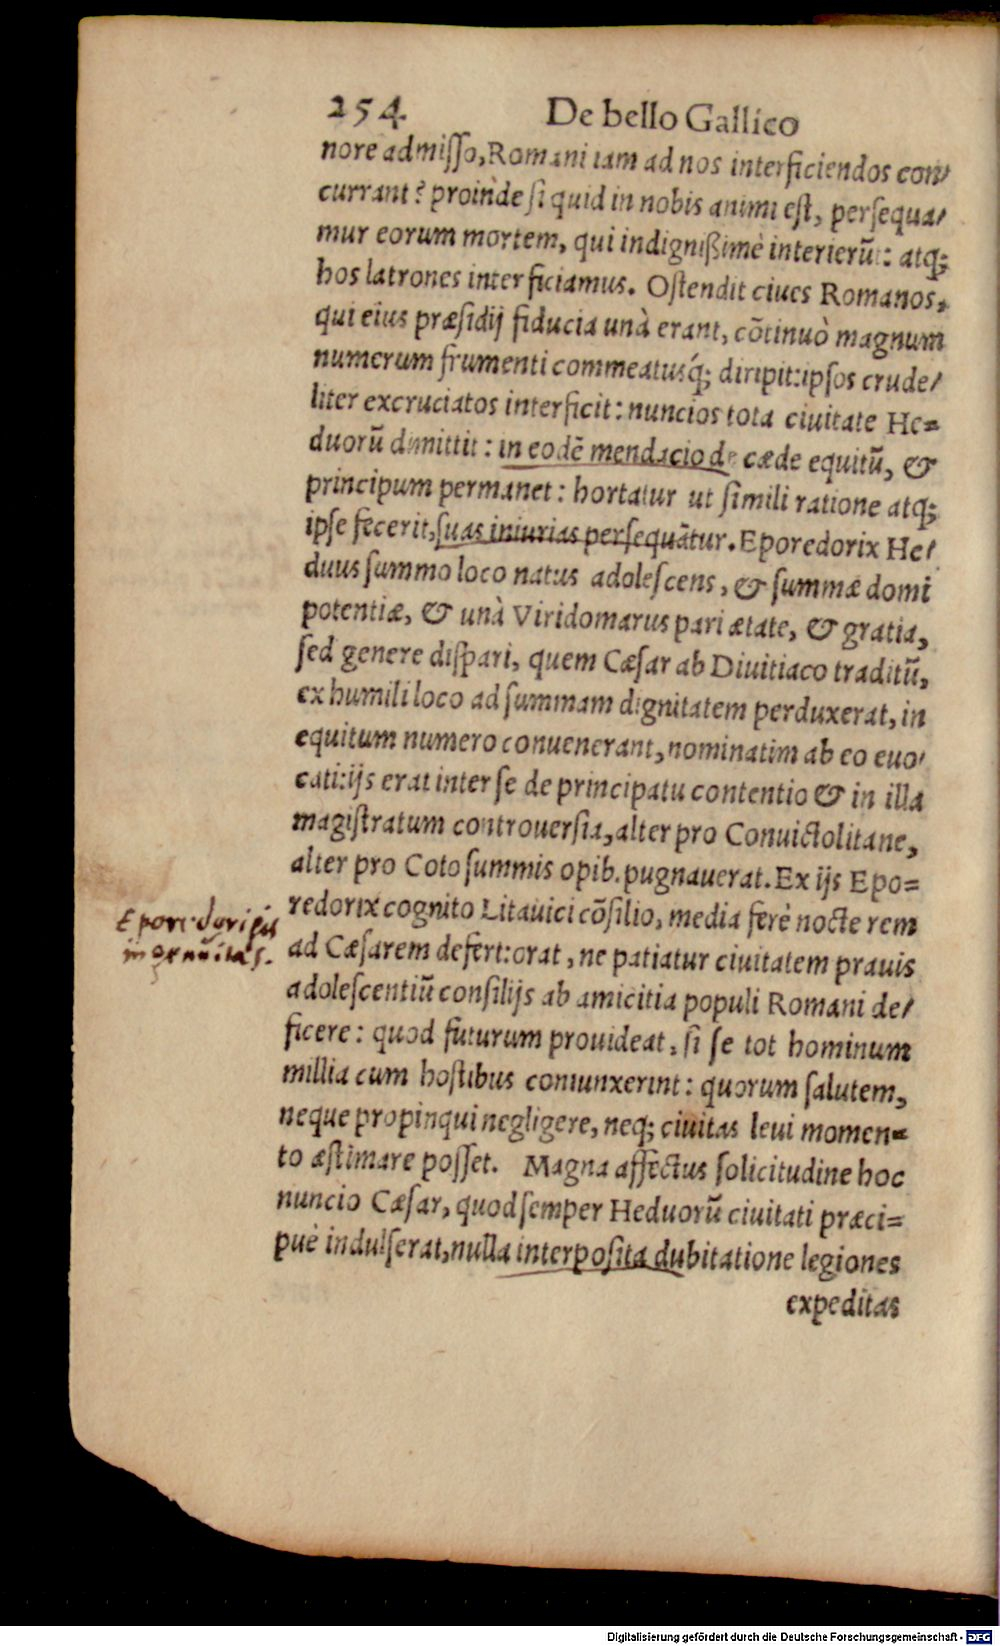 254 De bello Gallico
nore admiſſo, Romani iam ad nos interficiendos con/
currant? proinde ſi quid in nobis animi eſt, perſequa/
mur eorum mortem, qui indignißimè interierūt: atq;
hos latrones interficiamus. Oſtendit ciues Romanos,
qui eius præſidij fiducia unà erant, cōtinuò magnum
numerum frumenti commeatusq́; diripit: ipſos crude/
liter excruciatos interficit: nuncios tota ciuitate He=
duorū dimittit: in eodē mendacio de cæde equitū, &
principum permanet: hortatur ut ſimili ratione atq;
ipſe fecerit, ſuas iniurias perſequātur. Eporedorix He/
duus ſummo loco natus adoleſcens, & ſummæ domi
potentiæ, & unà Viridomarus pari ætate, & gratia,
ſed genere diſpari, quem Cæſar ab Diuitiaco traditū,
ex humili loco ad ſummam dignitatem perduxerat, in
equitum numero conuenerant, nominatim ab eo euo/
cati: ijs erat inter ſe de principatu contentio & in illa
magiſtratum controuerſia, alter pro Conuictolitane,
alter pro Coto ſummis opib. pugnauerat. Ex ijs Epo=
redorix cognito Litauici cōſilio, media ferè nocte rem
ad Cæſarem defert: orat, ne patiatur ciuitatem prauis
adoleſcentiū conſilijs ab amicitia populi Romani de/
ficere: quod futurum prouideat, ſi ſe tot hominum
millia cum hoſtibus coniunxerint: quorum ſalutem,
neque propinqui negligere, neq; ciuitas leui momen=
to æſtimare poſſet. Magna affectus ſolicitudine hoc
nuncio Cæſar, quod ſemper Heduorū ciuitati præci=
puè indulſerat, nulla interpoſita dubitatione legiones
expeditas
Eporedorigis
ingenuitas.
Digitalisierung gefördert durch die Deutsche Forschungsgemeinschaft - DFG